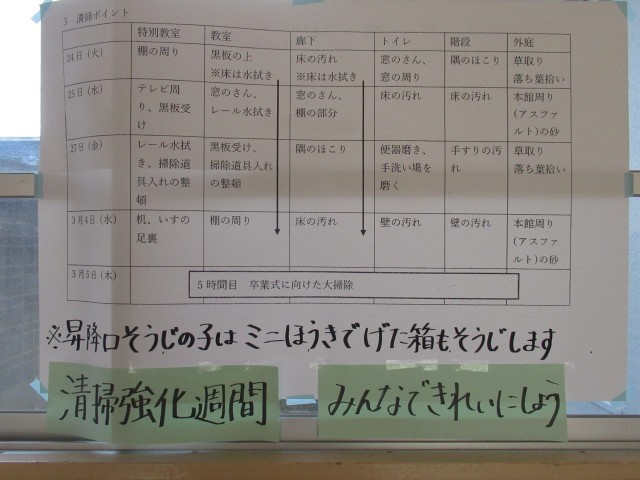 3 清掃ポイント
特別教室 教室 廊下 トイレ 階段 外庭
24日(火) 棚の周り 黒板の上 床の汚れ 窓のさん、 隅のほこり 草取り
※床は水拭き ※床は水拭き 窓の周り 落ち葉拾い
25日(水) テレビ周 窓のさん、 窓のさん、 床の汚れ 床の汚れ 本館周り
り、黒板受 レール水拭き 棚の部分 (アスファ
け ルト)の砂
27日(金) レール水拭 黒板受け、 隅のほこり 便器磨き、 手すりの汚 草取り
き、掃除道 掃除道具入れ 手洗い場を れ 落ち葉拾い
具入れの整 の整頓 磨く
頓
3月4日(水) 机、いすの 棚の周り 床の汚れ 壁の汚れ 壁の汚れ 本館周り
足裏 (アスファ
ルト)の砂
3月5日(木) 5時間目 卒業式に向けた大掃除
※昇降口そうじの子は ミニほうきでげた箱もそうじします
清掃強化週間 みんなできれいにしよう